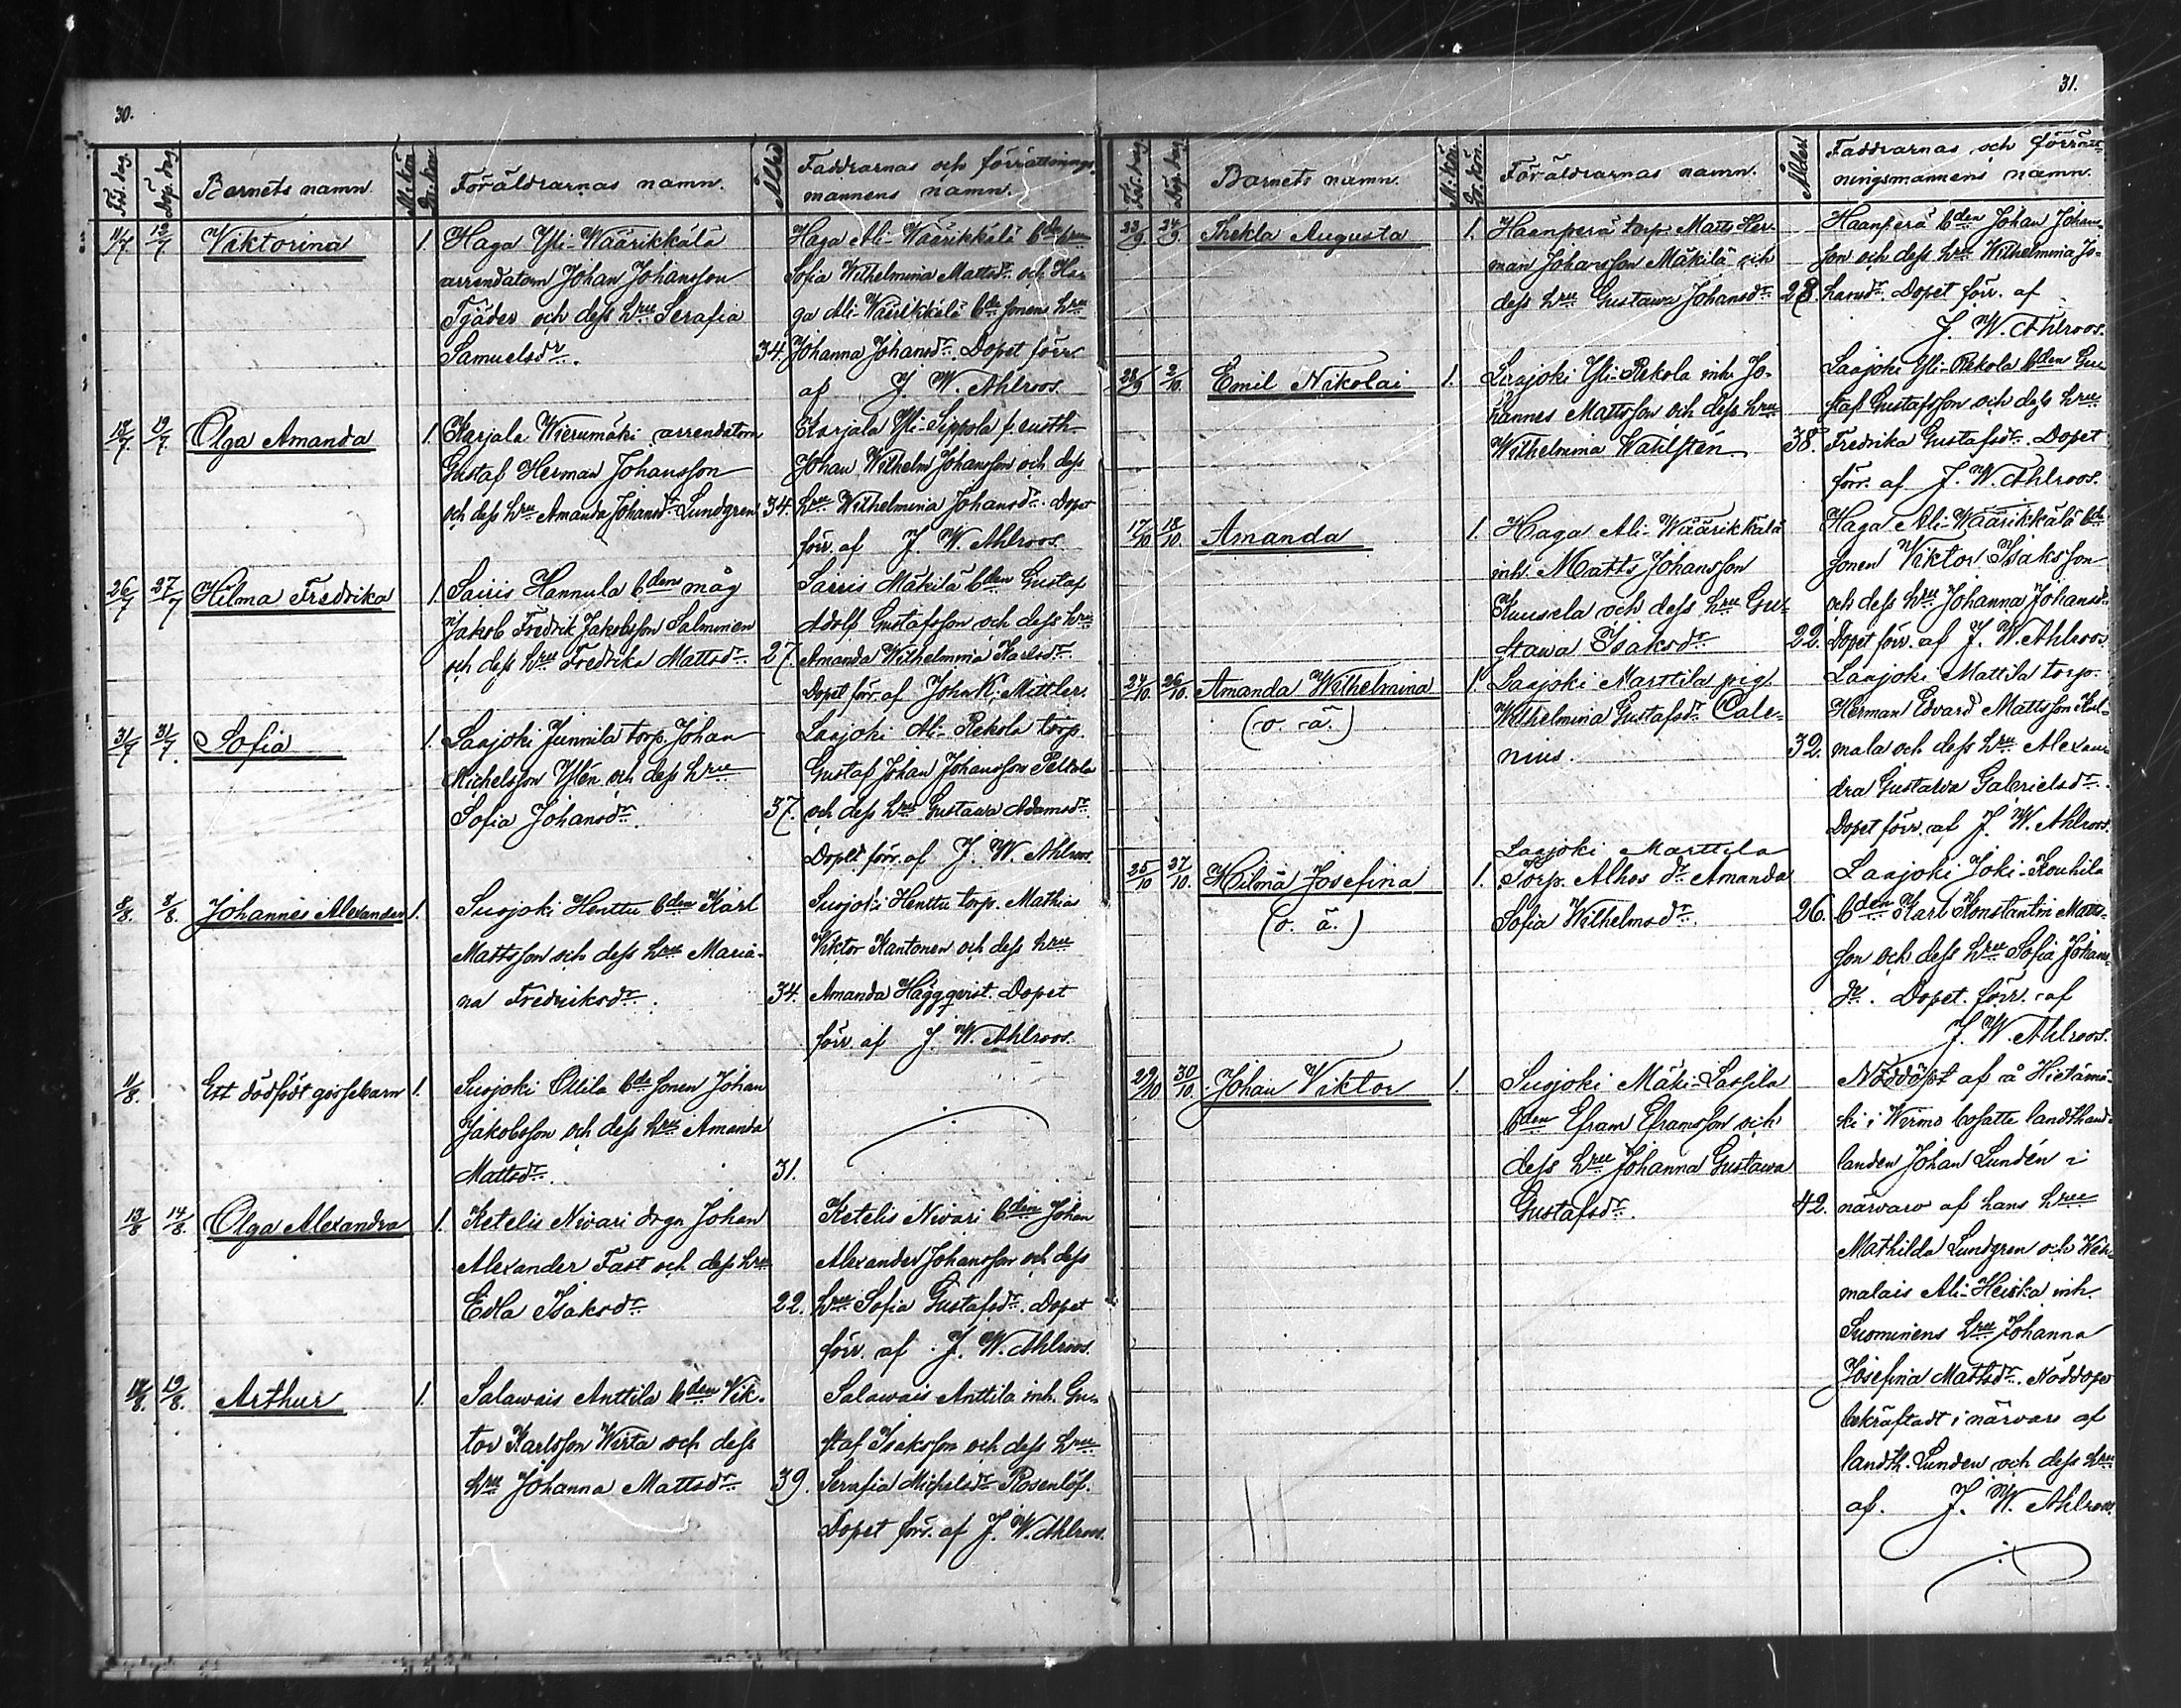 30.
Föd. dag.
Döp. dag
Barnets namn.
M. kön
Qv. kön
Föräldrarnas namn.
Ålder
Faddrarnas och förrättnings-
mannens namn.
11/7. 12/7 Viktorina 1. Haga Yli-Wäärikkälä
arrendatorn Johan Johansson
Tjäder och dess hru Serafia
Samuelsdr. 34.
Haga Ali-Wäärikkälä bde
Sofia Wilhelmina Mattsdr och Ha-
ga Ali-Wäärikkälä bde sonens hru
Johanna Johansdr. Dopet förr.
af J. W. Ahlroos.
18/7. 19/7. Olga Amanda 1. Karjala Wierumäki arrendatorn
Gustaf Herman Johansson
och dess hru Amanda Johansdr Lundgren 34.
Karjala Yli-Sippola f. rusth
Johan Wilhelm Johansson och dess
hru Wilhelmina Johansdr. Dopet
förr. af J. W. Ahlroos.
26/7 27/7 Hilma Fredrika 1. Sairis Hannula bdens måg
Jakob Fredrik Jakobsson Salminen
och dess hru Fredrika Mattsdr. 27
Sairis Mäkilä bden Gustaf
Adolf Gustafsson och dess hru
Amanda Wilhelmina Karlsdr.
Dopet förr. af John K. Mittler.
31/7 31/7. Sofia 1. Laajoki Junnila torp. Johan
Michelsson Ylén och dess hru
Sofia Johansdr. 37.
Laajoki Ali-Rekola torp.
Gustaf Johan Johansson Peltola
och dess hru Gustava Adamsdr.
Dopet förr. af J. W. Ahlroos
8/8. 8/8. Johannes Alexander 1. Suojoki Henttu bden Karl
Mattsson och dess hru Maria-
na Fredriksdr. 34.
Suojoki Henttu torp. Mathias
Viktor Kantonen och dess hru
Amanda Häggqvist. Dopet
förr. af J. W. Ahlroos.
11/8. Ett dödfödt gossebarn 1. Suojoki Ollila bde sonen Johan
Jakobsson och dess hru Amanda
Mattsdr. 31.
13/8 14/8. Olga Alexandra 1. Ketelis Nivari drgn Johan
Alexander Fast och dess hru
Edla Isaksdr 22.
Ketelis Nivari bden Johan
Alexander Johansson och dess
hru Sofia Gustafsdr. Dopet
förr. af J. W. Ahlroos.
18/8. 19/8. Arthur 1. Salawais Anttila bden Vik-
tor Karlsson Wirta och dess
hru Johanna Mattsdr 39.
Salawais Anttila inh. Gu-
staf Isaksson och dess hru
Serafia Michelsdr Rosenlöf.
Dopet förr. af J. W. Ahlroos.
31.
Föd. dag
Döp. dag
Barnets namn.
M. kön.
Qv. kön.
Föräldrarnas namn.
Ålder
Faddrarnas och förrätt-
ningsmannens namn.
23/9. 24/9. Thekla Augusta 1. Haanperä torp. Matts Her-
man Johansson Mäkilä och
dess hru Gustawa Johansdr 28.
Haanperä bden Johan Johans-
son och dess hru Wilhelmina Jo-
hansdr. Dopet förr. af
J. W. Ahlroos.
28/9 2/10. Emil Nikolai 1. Laajoki Yli-Rekola inh. Jo-
hannes Mattsson och dess hru
Wilhelmina Wahlstén 38.
Laajoki Yli-Rekola bden Gu-
staf Gustafsson och dess hru
Fredrika Gustafsdr. Dopet
förr. af J. W. Ahlroos.
17/10 18/10. Amanda 1. Haga Ali-Wäärikkälä
inh. Matts Johansson
Kuusela och dess hru Gu-
stawa Isaksdr 22.
Haga Ali-Wäärikkälä bde
sonen Viktor Isaksson
och dess hru Johanna Johansdr
Dopet förr. af J. W. Ahlroos
24/10. 26/10. Amanda Wilhelmina 1. Laajoki Marttila pig.
(o. ä.)
Wilhelmina Gustafsdr Cale-
nius. 32.
Laajoki Mattila torp.
Herman Edvard Mattsson Kul-
mala och dess hru Alexan-
dra Gustawa Gabrielsdr.
Dopet förr. af J. W. Ahlroos.
25/10 27/10. Hilma Josefina 1. Laajoki Marttila
Torp. Alhos dr Amanda
(o. ä.)
Sofia Wilhelmsdr. 26.
Laajoki Joki-Kouhila
bden Karl Konstantin Matts-
son och dess hru Sofia Johans-
dr. Dopet. förr. af
J. W. Ahlroos.
29/10 30/10. Johan Viktor 1. Suojoki Mäki-Lassila
bden Efram Eframsson och
dess hru Johanna Gustawa
Gustafsdr. 42.
Nöddöpt af å Hietamä-
ki i Wirmo bosatte landthand-
landen Johan Lundén i
närvaro af hans hru
Mathilda Lundgren och Weh-
malais Ali-Heikka inh.
Suominens hru Johanna
Josefina Mattsdr. Nöddopet
bekräftadt i närvaro af
landth. Lunden och dess hru
af. J. W. Ahlroos.